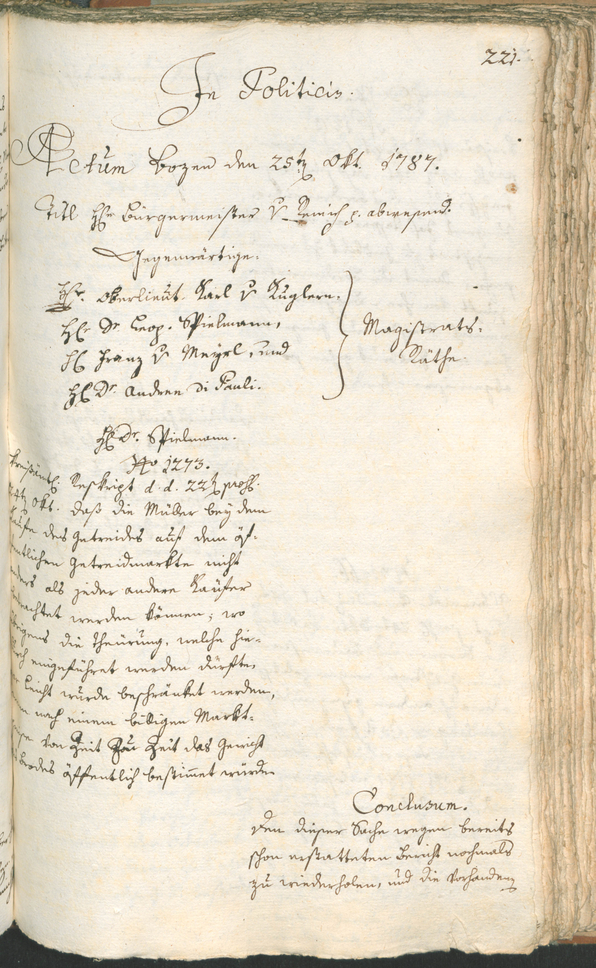 221.
In Politicis.
Actum Bozen den 25t Okt. 1787.
Titl Hr Bürgermeister v abwesend.
Gegenwärtige.
Hr. Oberlieut. Karl v Kuglern,
Hr Dr Leop. Spielmann,
Hr Franz v Mayrl, und
Hr Dr. Andree Di Pauli.
Magistrats-
Räthe.
Hr Dr. Spielmann.
No 1273.
Kreisämtl. Reskript d. d. 22t
Okt. daß die Müller bey dem
Kaufe des Getreides auf dem öf-
fentlichen Getreidmarkte nicht
anders als jeder andere Käufer
betrachtet werden können; wo
übrigens die Theürung, welche hie-
durch eingeführet werden dürfte,
leicht würde beschränket werden,
nach einem billigen Markt-
von Zeit zu Zeit das Gewicht
Brodes öffentlich bestimmet würde
Conclusum.
Den dieser Sache wegen bereits
schon erstatteten Bericht nochmals
zu wiederholen, und die vorhanden